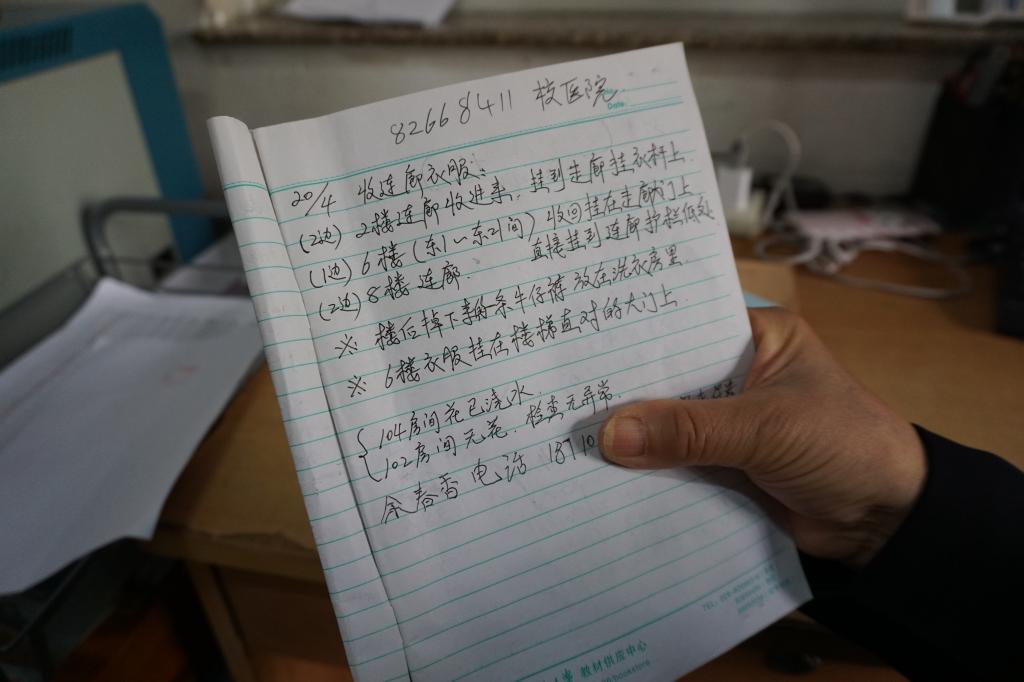 82668411 校医院
Date:
20/4 收连廊衣服:
(2边) 2楼连廊收进来,挂到走廊挂衣杆上.
(1边) 6楼(东1~东21间)收回挂在走廊门上
(2边) 8楼连廊. 直接挂到连廊护栏低处
※ 楼后掉下来的一条牛仔裤放在洗衣房里
※ 6楼衣服挂在楼梯直对的大门上.
104房间花已浇水.
102房间无花.检查无异常.
余春香电话 18710
教材供应中心